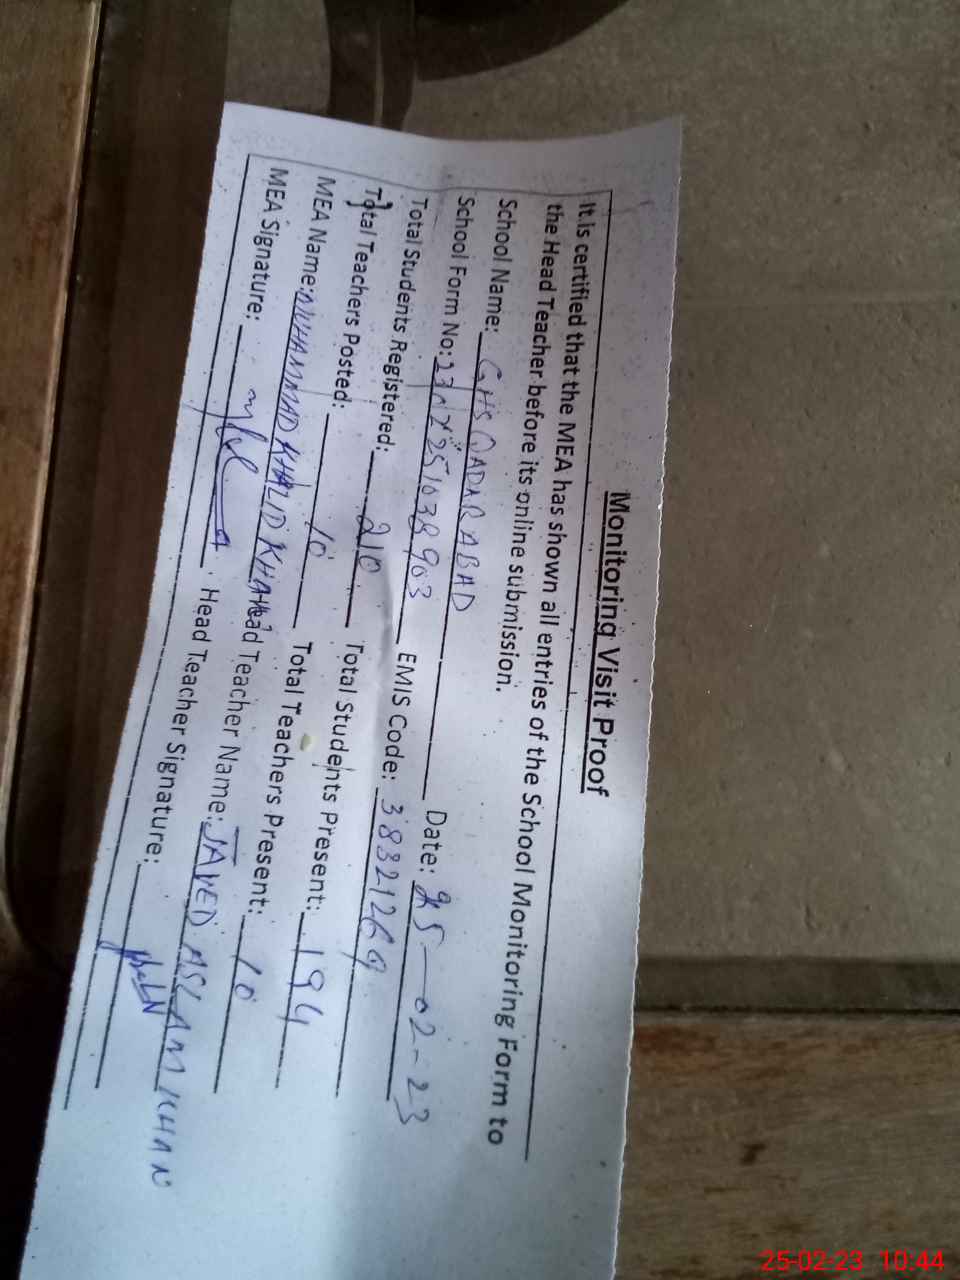 Monitoring Visit Proof
It is certified that the MEA has shown all entries of the School Monitoring Form to
the Head Teacher before its online submission.
School Name: GHS QADAR ABAD Date: 25-02-23
School Form No: 251038903 EMIS Code: 38321269
Total Students Registered: 210 Total Students Present: 194
Total Teachers Posted: 10 Total Teachers Present: 10
MEA Name: MUHAMMAD KHALID KHAN Head Teacher Name: JAVED ASLAM KHAN
MEA Signature: Head Teacher Signature:
25-02-23 10:44